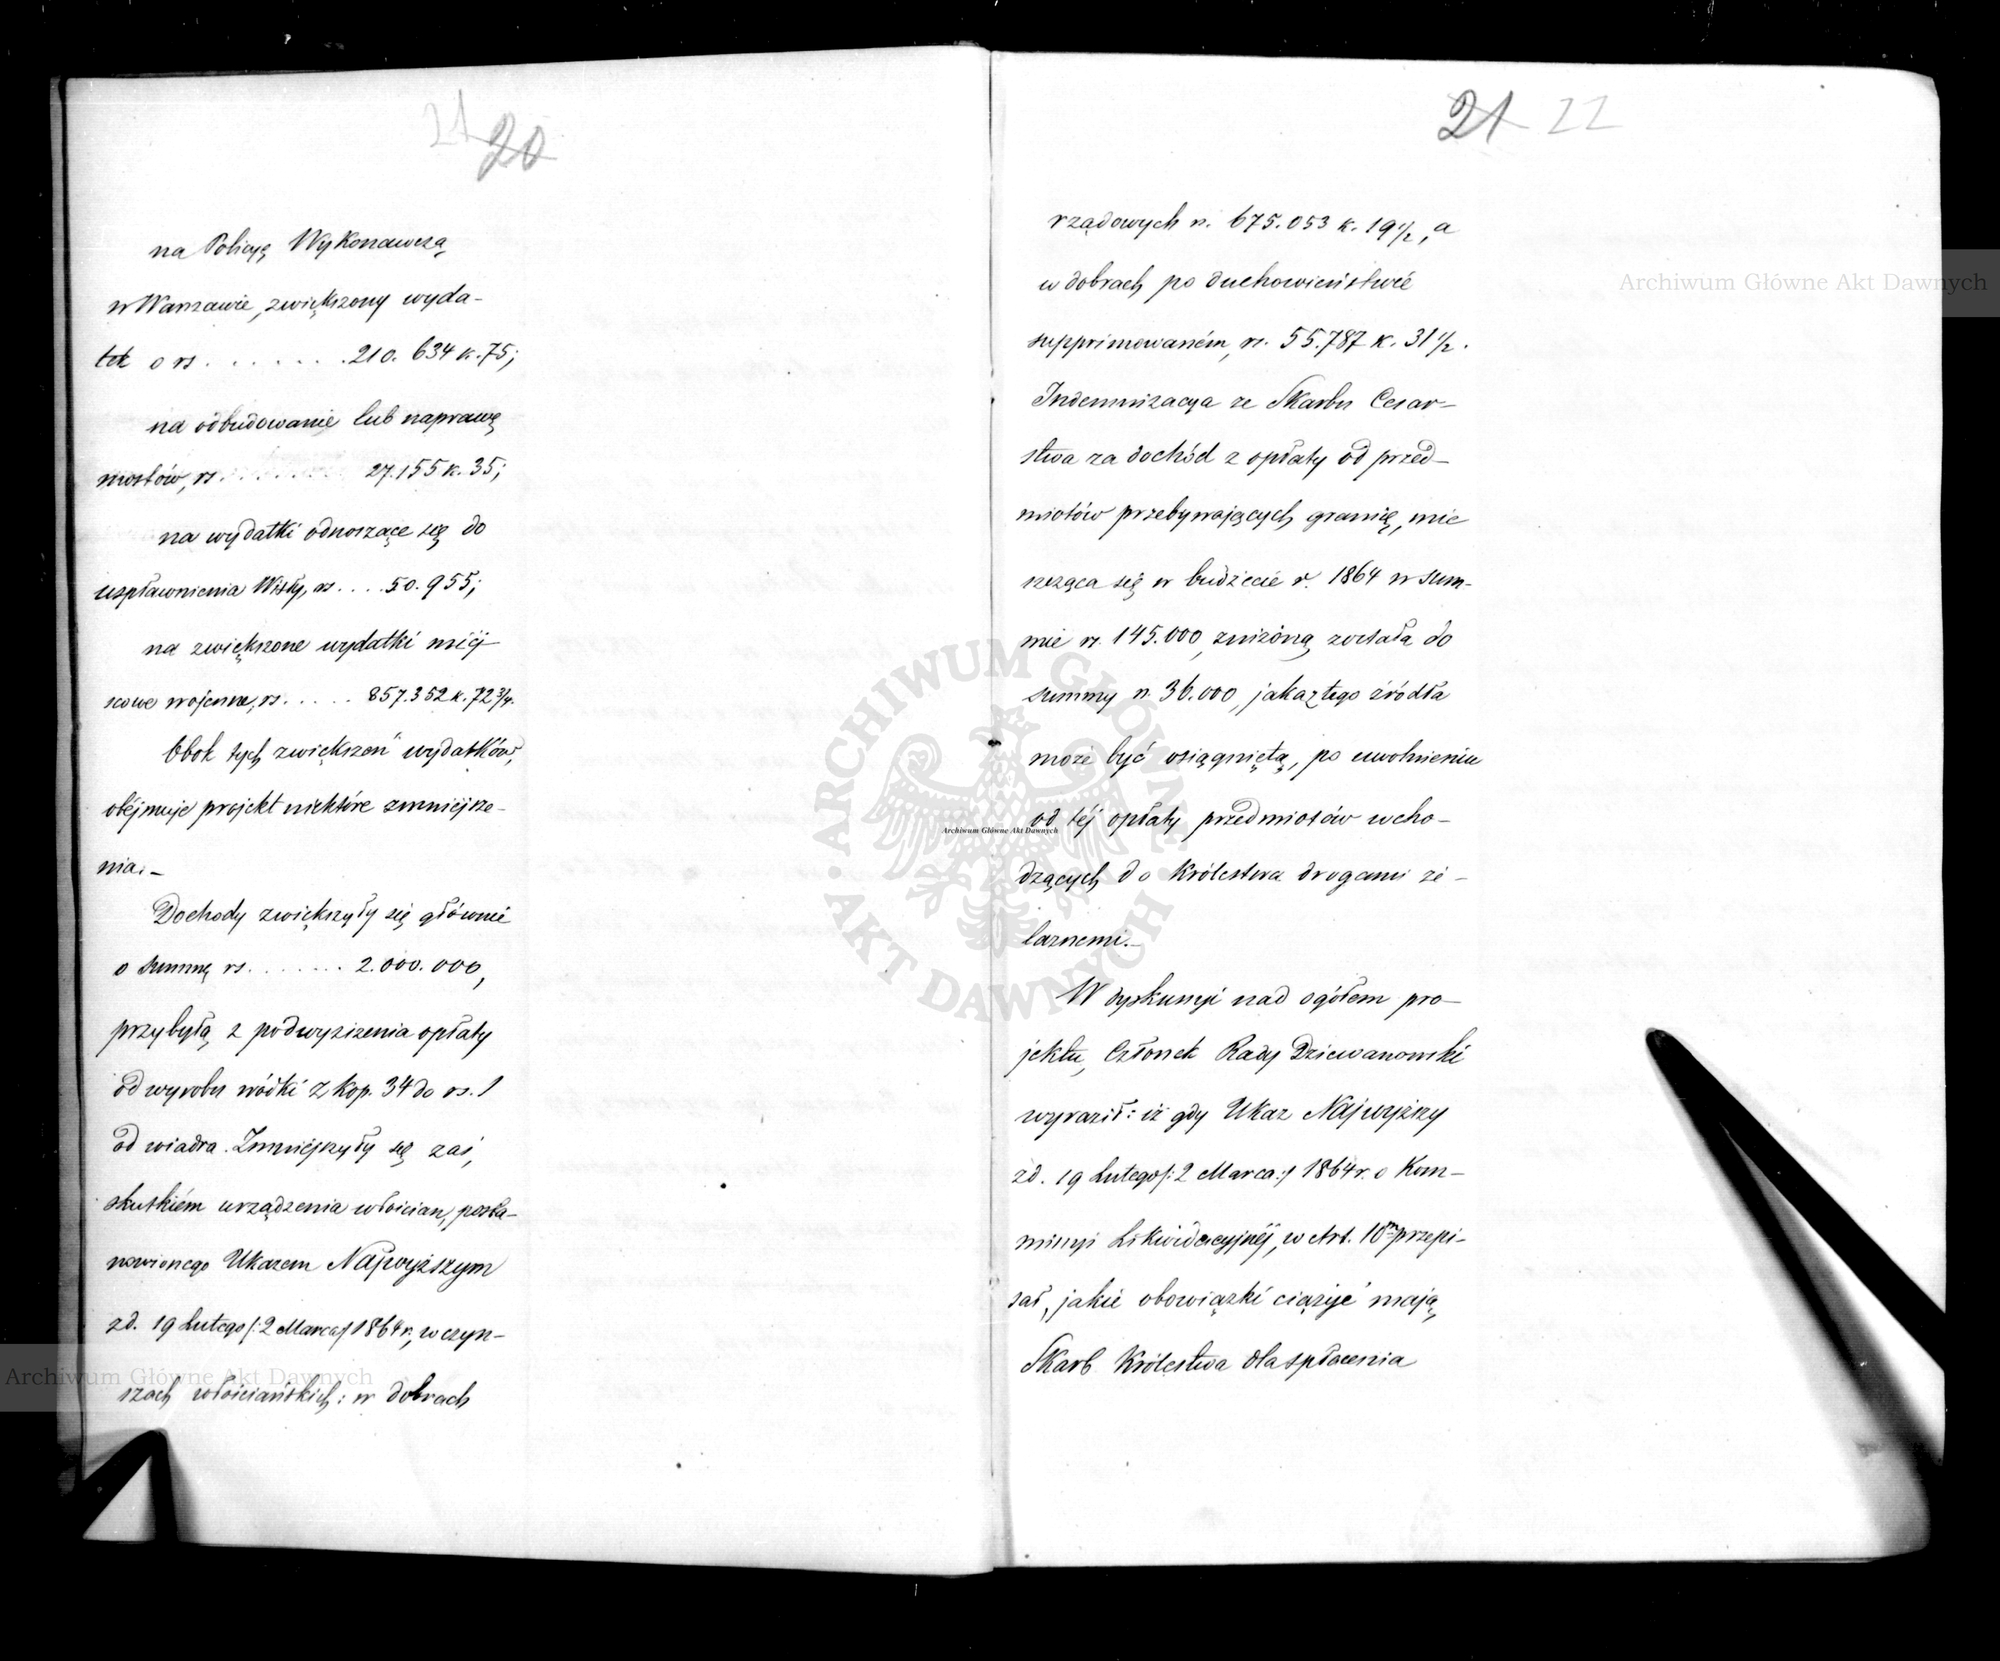 21 20
na Policyę Wykonawczą
w Warszawie, zwiększony wyda-
tek o rs . . . . . . . 210.634 k. 75;
na odbudowanie lub naprawę
mostów, rs . . . . . . . 27.155 k. 35;
na wydatki odnoszące się do
uspławnienia Wisły, rs . . . . 50.955;
na zwiększone wydatki miéj-
scowe wojenne, rs. . . . . 857.352 k. 72 3/4.
Obok tych zwiększeń wydatków,
obéjmuje projekt niektóre zmniejsze-
nia. –
Dochody zwiększyły się głównie
o summę rs . . . . . . . 2.000.000,
przybyłą z podwyższenia opłaty
od wyrobu wódki z kop. 34 do rs. 1
od wiadra. Zmniejszyły się zaś,
skutkiém urządzenia włościan, posta-
nowionego Ukazem Najwyższym
z d. 19 Lutego /: 2 Marca :/ 1864 r., w czyn-
szach włościańskich: w dobrach
21 22
rządowych rs. 675.053 k. 19 1/2, a
w dobrach po duchowieństwie
supprimowaném, rs. 55.787 k. 31 1/2.
Indemnizacya ze Skarbu Cesar-
stwa za dochód z opłaty od przed-
miotów przebywających granicę, mie
szcząca się w budżecie r. 1864 w sum-
mie rs. 145.000, zniżoną została do
summy rs. 36.000, jaka z tego źródła
może być osiągniętą, po uwolnieniu
od téj opłaty przedmiotów wcho-
dzących do Królestwa drogami że-
laznemi. –
W dyskussyi nad ogółem pro-
jektu, Członek Rady Dziewanowski
wyraził: iż gdy Ukaz Najwyższy
z d. 19 Lutego /: 2 Marca :/ 1864 r. o Kom-
missyi Likwidacyjnéj, w Art. 10m przepi-
sał, jakie obowiązki ciążyć mają
Skarb Królestwa dla spłacenia
Archiwum Główne Akt Dawnych
Archiwum Główne Akt Dawnych
Archiwum Główne Akt Dawnych
ARCHIWUM GŁÓWNE AKT DAWNYCH